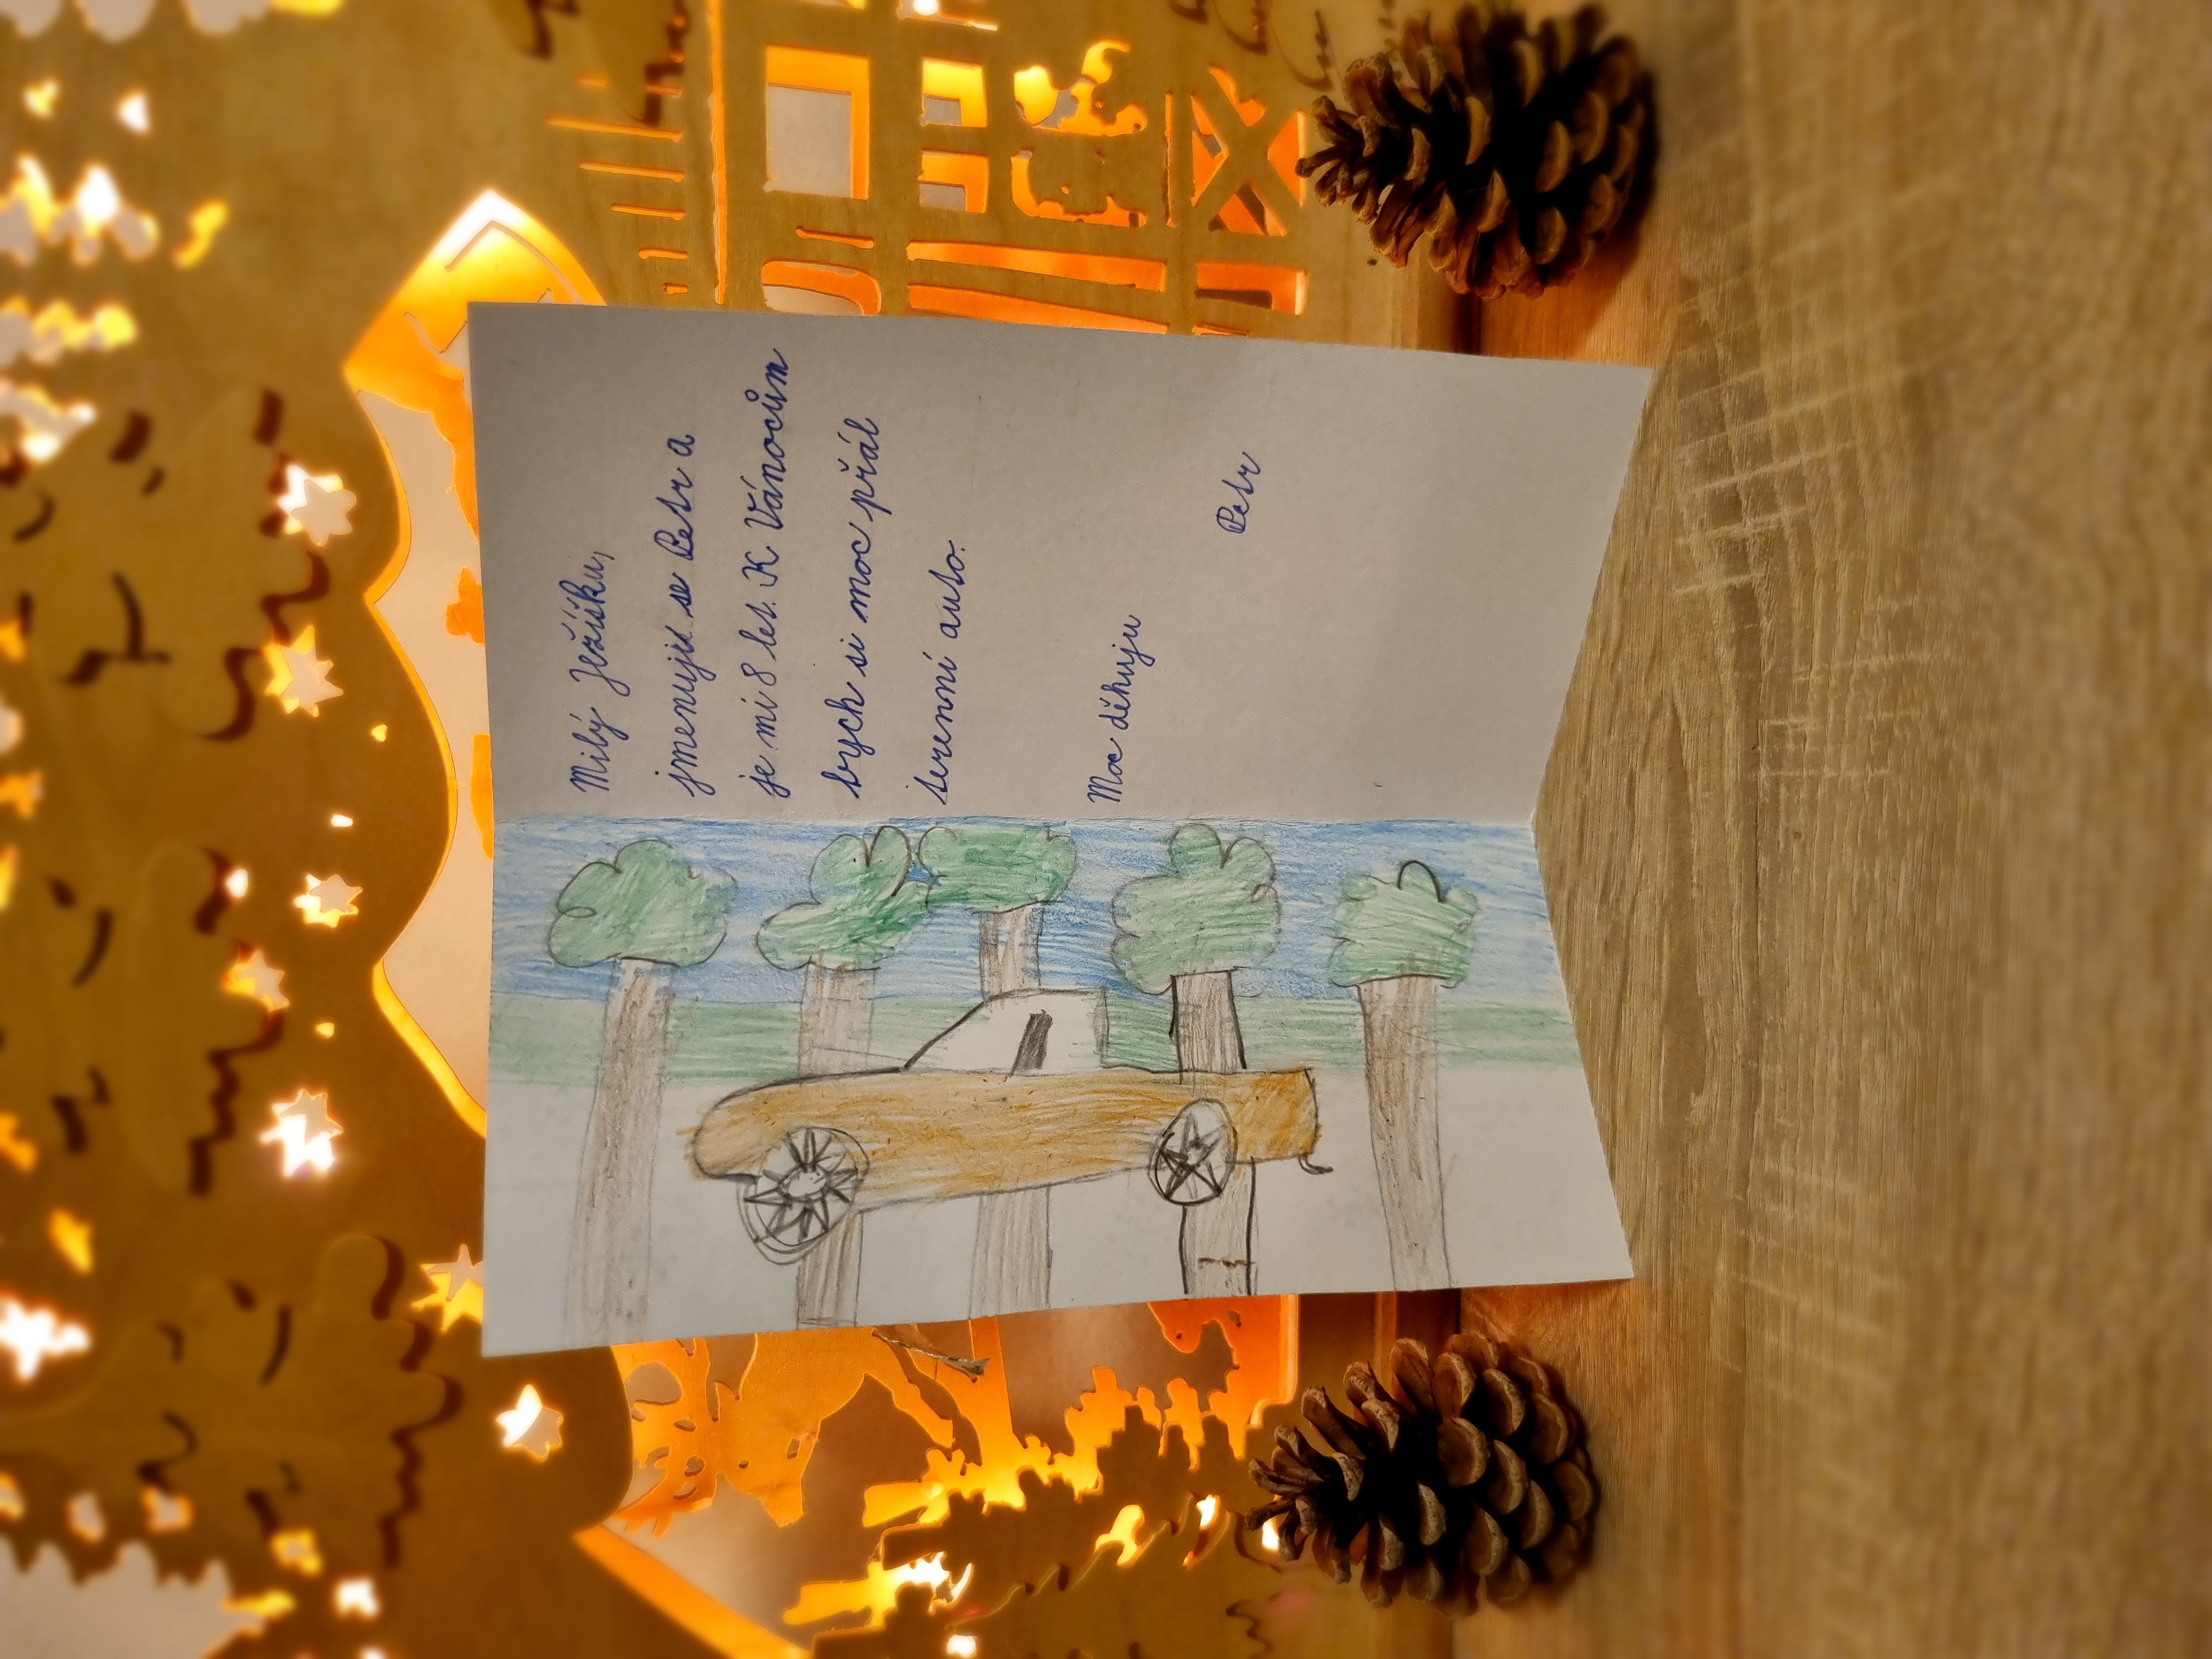 Milý Ježíšku,
jmenuji se Petr a
je mi 8 let. K Vánocům
bych si moc přál
terenní auto.
Moc děkuju
Petr